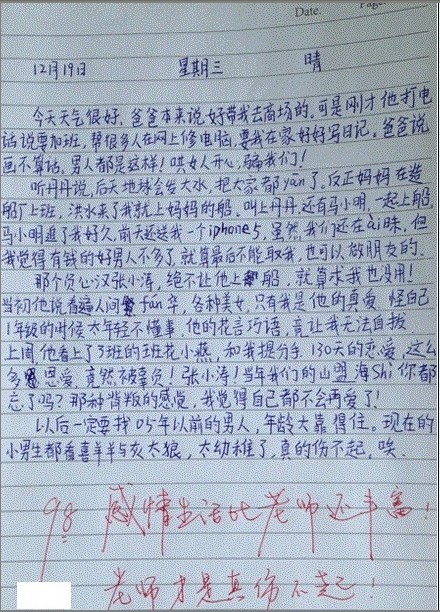 Date.
Page:
12月19日 星期三 晴
今天天气很好，爸爸本来说好带我去商场的。可是刚才他打电
话说要加班，帮很多人在网上修电脑，要我在家好好写日记。爸爸说
画不算话。男人都是这样！哄女人开心，骗我们！
听丹丹说，后天地球会发大水，把大家都yān了。反正妈妈在造
船厂上班，洪水来了我就上妈妈的船。叫上丹丹，还有马小明，一起上船。
马小明追了我好久，前天还送我一个iphone5，虽然我们还在ài昧，但
我觉得有钱的好男人不多了，就算最后不能取我，也可以做朋友的。
那个负心汉张小涛，绝不让他上船，就算求我也没用！
当初他说看遍人间fán华，各种美女，只有我是他的真爱，怪自己
1年级的时候太年轻不懂事，他的花言巧语，竟让我无法自拔
上周，他看上了3班的班花小燕，和我提分手，130天的恋爱，这么
多恩爱，竟然被辜负！张小涛！当年我们的山盟海Shi你都
忘了吗？那种背叛的感觉，我觉得自己都不会再爱了！
以后一定要找05年以前的男人，年龄大靠得住。现在的
小男生都看喜羊羊与灰太狼，太幼稚了，真的伤不起，唉。
98 感情生活比老师还丰富！
老师才是真伤不起！